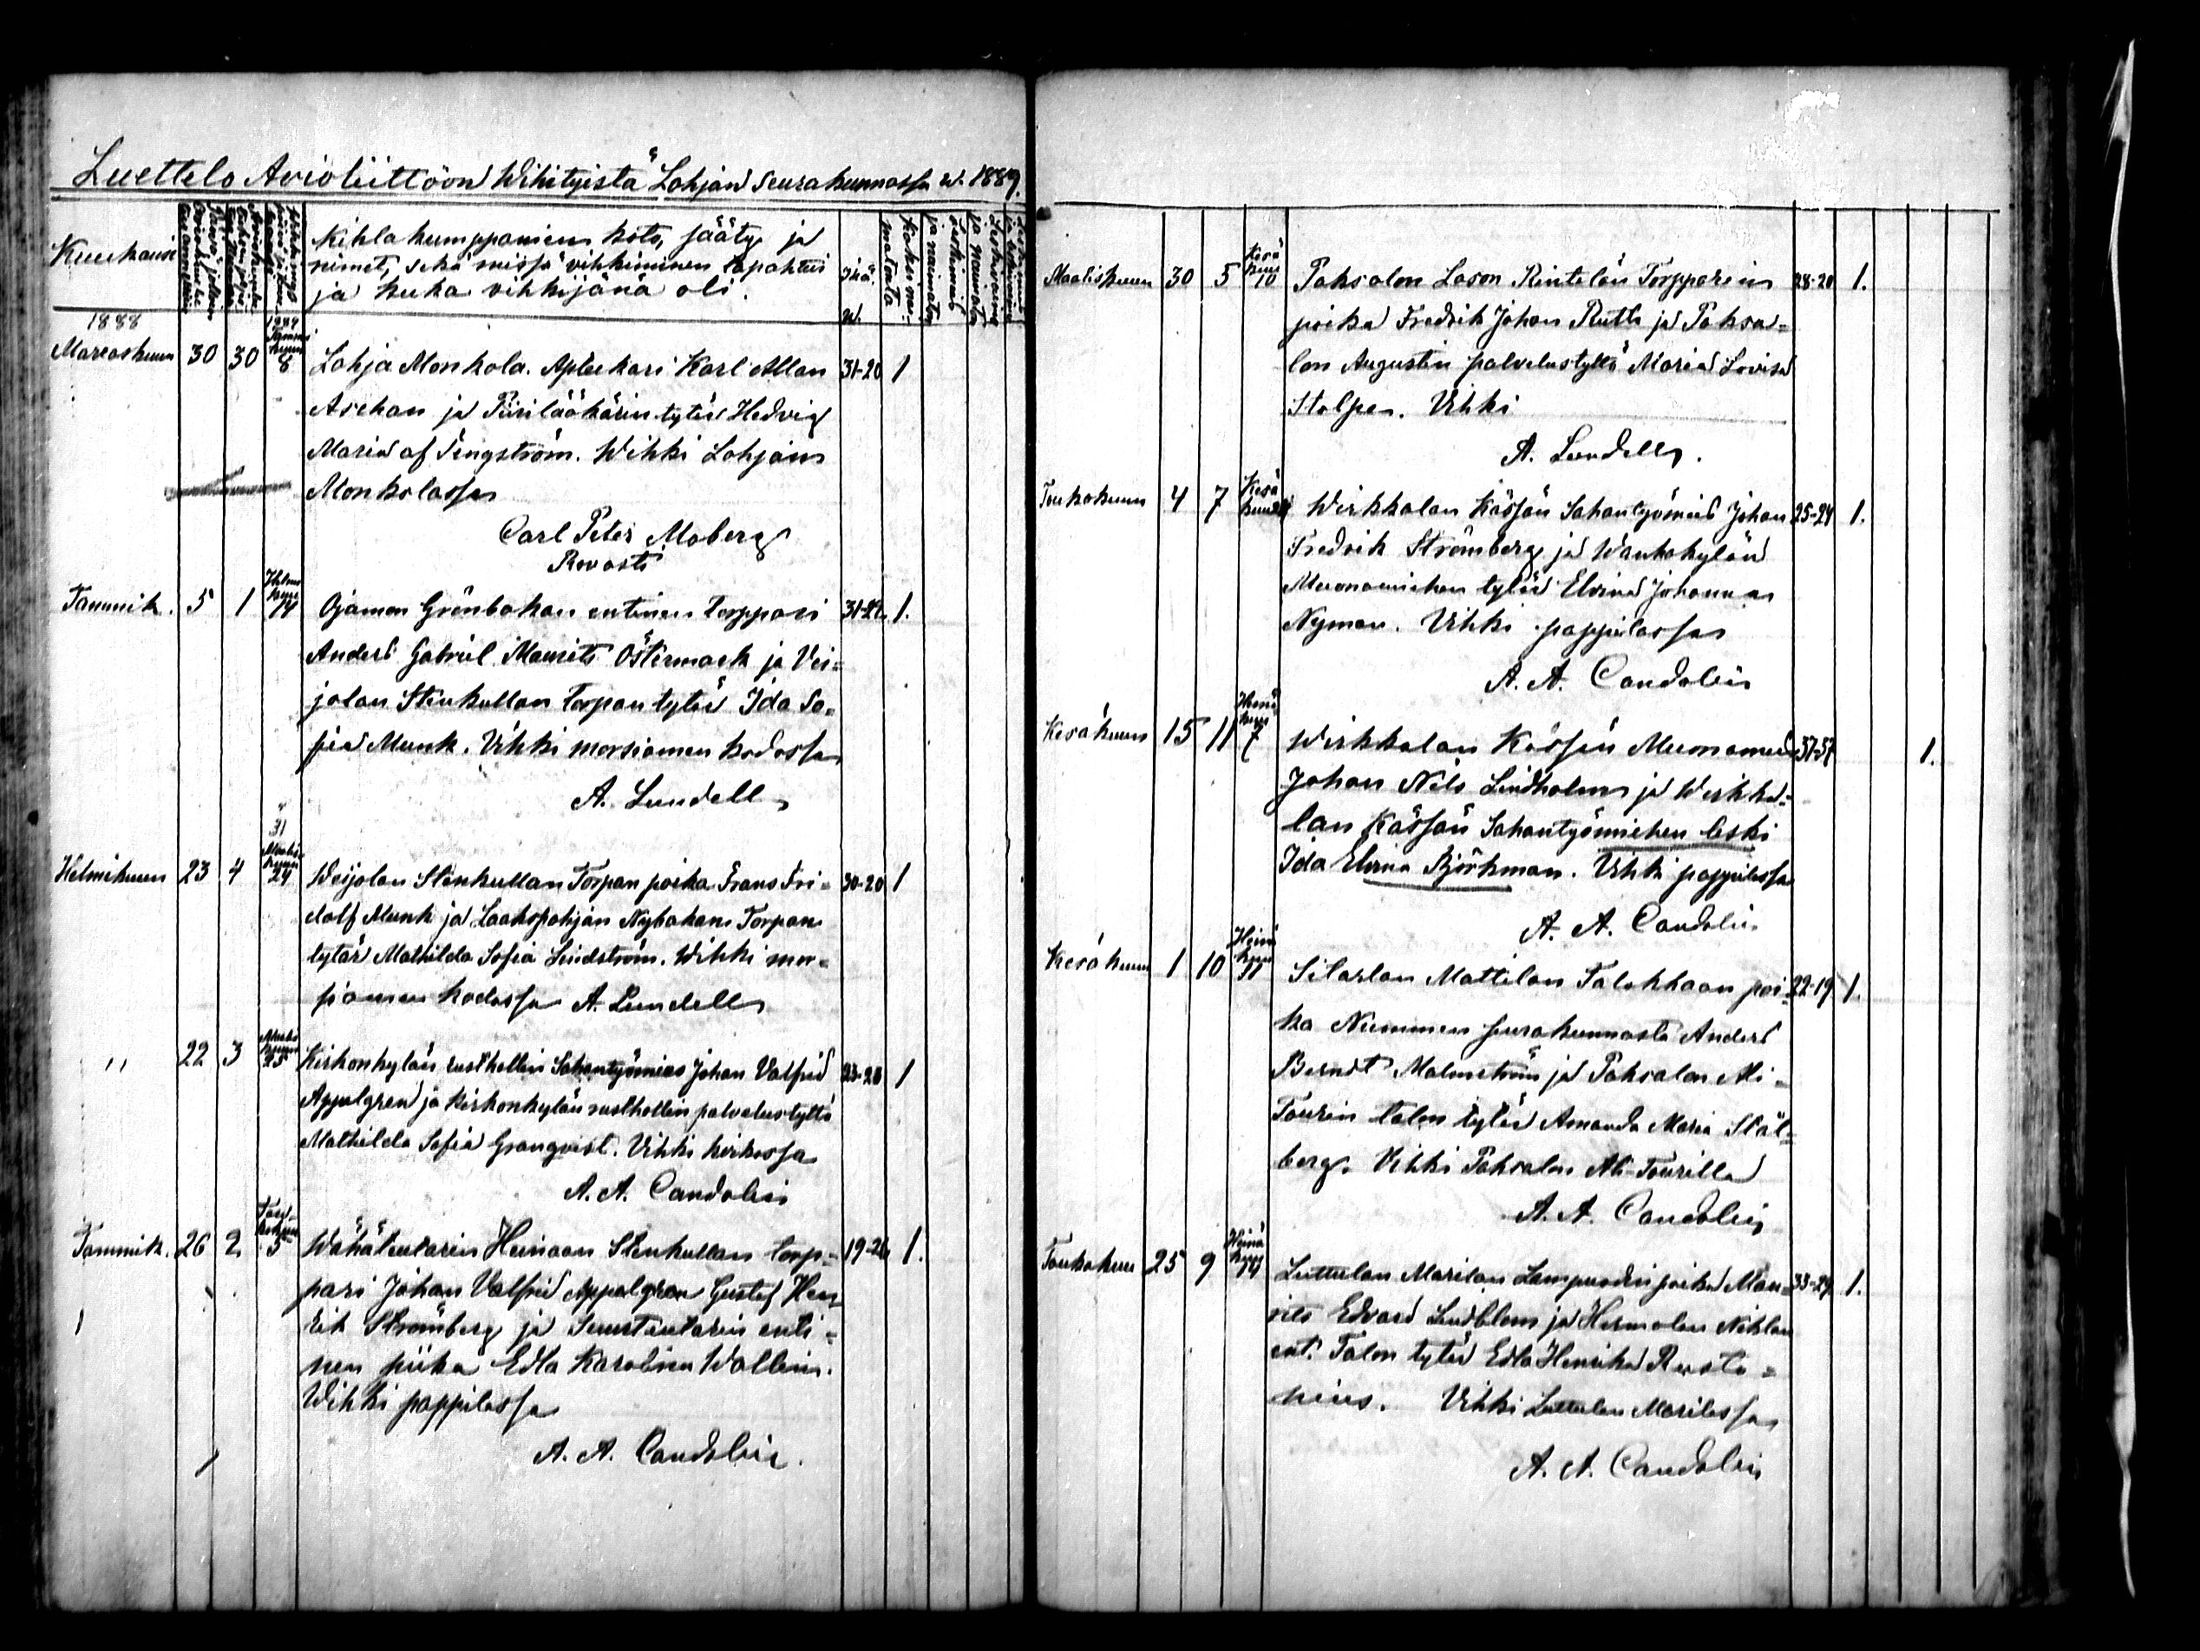 Luettelo Avioliittoon Wihityistä Lohjan Seurakunnassa w. 1889.
Kuukausi
Kihlakumppanien koto, sääty ja
nimet, sekä missä vihkiminen tapahtui
ja kuka vihkijänä oli.
Ikä.
w.
1888
Marraskuun 30 30 1889 Tammikuun 8 Lohja Monkola. Aptekari Karl Allan 31-20 1
Aschan ja Piirilääkärin tytär Hedvig
Maria af Tengström. Wihki Lohjan
Monkolassa
Carl Peter Moberg
Rovasti
Tammik. 5 1 Helmikuun 14 Ojamon Grönbakan entinen torppari 31-22 1.
Anders Gabriel Maurits Östermark ja Vei=
jolan Stenkullan torpan tytär Ida So=
fia Munk. Vihki morsiamen kodossa
A. Lundell
31
Helmikuun 23 4 Maaliskuun 24 Weijolan Stenkullan Torpan poika Frans Fri= 30-20 1
dolf Munk ja Laakspohjan Nybakan Torpan
tytär Mathilda Sofia Lindström. Wihki mor=
siamen kodossa A. Lundell
" 22 3 Maaliskuun 25 Kirkonkylän rusthollin Sahantyömies Johan Valfrid 23-20 1
Appelgren ja Kirkonkylän rusthollin palvelustyttö
Mathilda Sofia Granqvist. Vihki kirkossa
A. A. Candolin
Tammik. 26 2 Toukokuun 5 Wähäteutarin Heinaan Stenkullan torp= 19-26 1.
pari Johan Valfrid Appelgren Gustaf Hen
rik Strömberg ja Suurteutarin enti=
nen piika Edla Karolina Wallin.
Wihki pappilassa
A. A. Candolin.
Maaliskuun 30 5 Kesäkuun 10 Paksalon Lason Rintelän Torpparin 28-20 1.
poika Fredrik Johan Ruth ja Paksa=
lon Augustin palvelustyttö Maria Lovisa
Stolpe. Vihki
A. Lundell.
Toukokuun 4 7 Kesäkuun Wirkkalan Kässän Sahantyömies Johan 25-24 1.
Fredrik Strömberg ja Wankokylän
Muonamiehen tytär Elvira Johanna
Nyman. Vihki pappilassa
A. A. Candolin
Kesäkuun 15 11 Heinäkuun 7 Wirkkalan Kässän Muonamies 37-37 1.
Johan Nils Lindholm ja Wirkka=
lan Kässän Sahantyömiehen leski
Ida Elvina Björkman. Vihki pappilassa
A. A. Candolin
Kesäkuun 1 10 Heinäkuun 11 Sitarlan Mattilan Talokkaan poi= 22-19 1.
ka Nummen seurakunnasta Anders
Berndt Malmström ja Paksalon Ali=
Tourin talon tytär Amanda Maria Stål=
berg. Vihki Paksalon Ali-Tourilla
A. A. Candolin
Toukokuun 25 9 Heinäkuun 14 Luttulan Marilan Lampuodin poika Mau= 33-29 1.
rits Edvard Lindblom ja Hermolan Niklan
ent. Talon tytär Edla Henrika Rusto=
nius. Vihki Luttulan Marilassa
A. A. Candolin